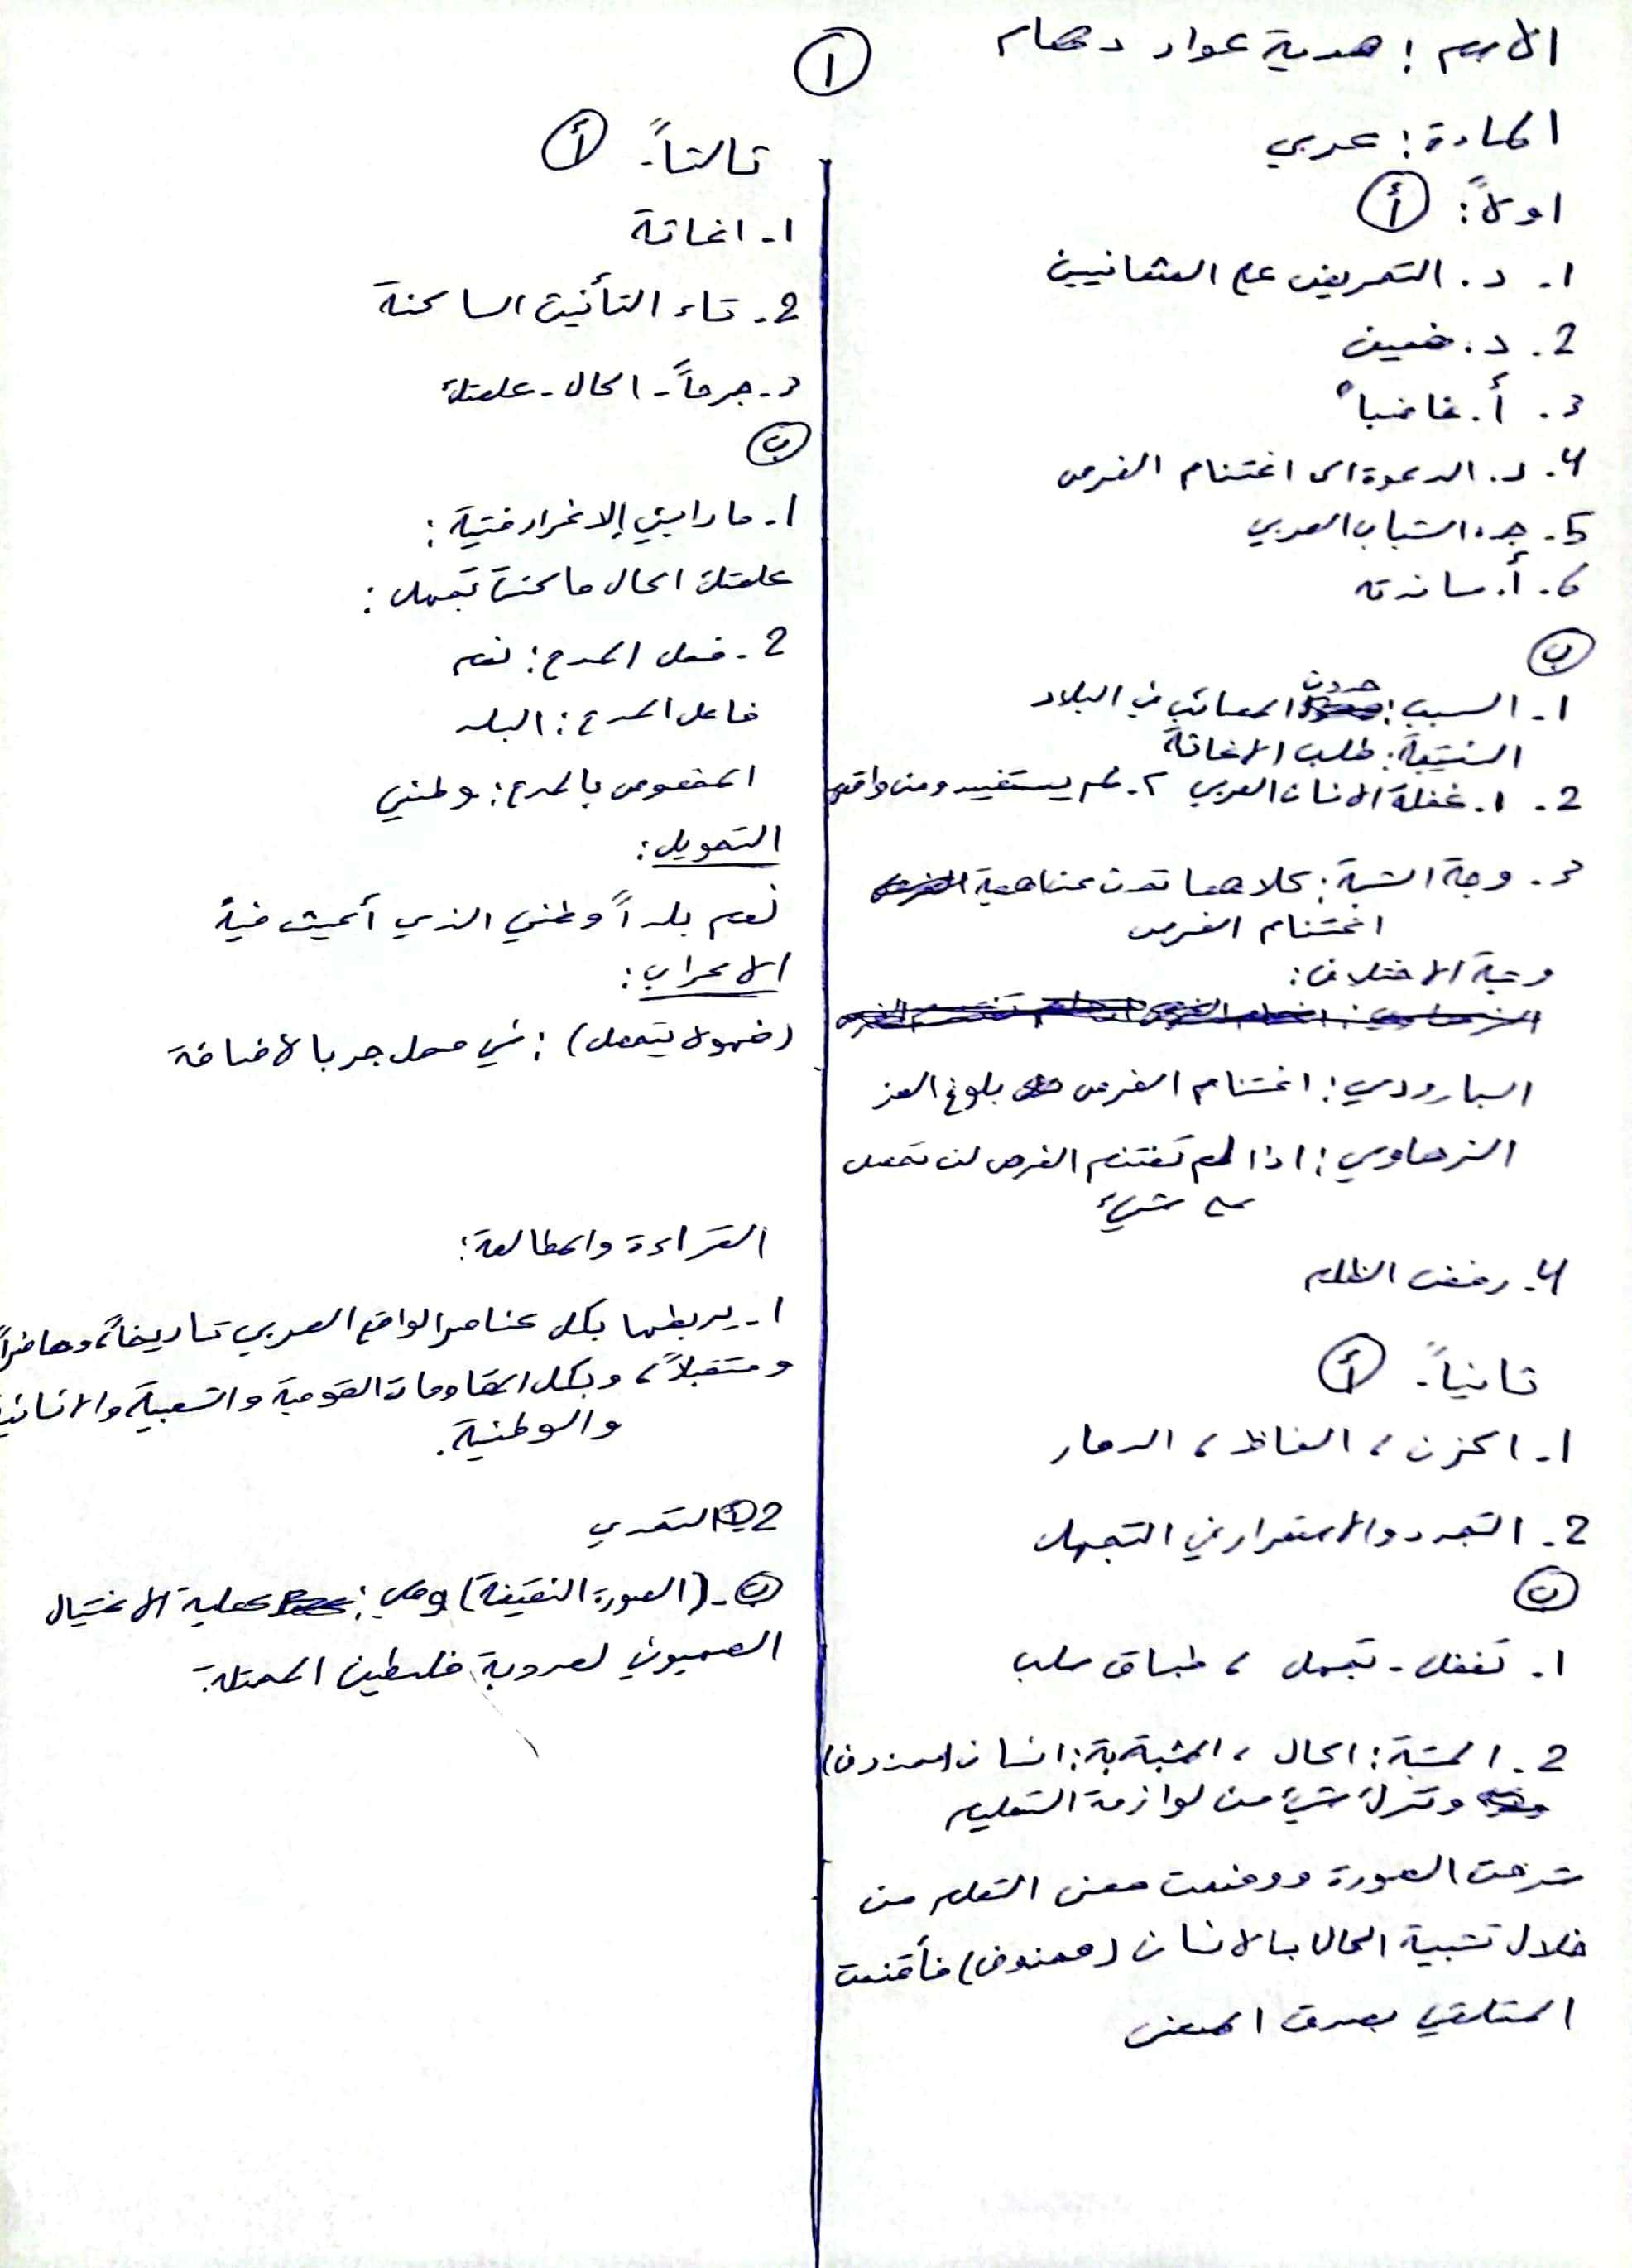 الاسم : هدية عواد دهام
①
المادة : عربي
اولاً : أ
1. د. التحريض على العثمانيين
2. د. ضعيف
3. أ. غاضباً
4. د. الدعوة الى اغتنام الفرص
5. جـ. الشباب العربي
6. أ. ساندته
ب
1- السبب : حدوث المصائب في البلاد
النتيجة : طلب الاغاثة
2. 1. غفلة الانسان العربي 2. لم يستفيد ومن واقعه
3. وجة الشبة : كلاهما تحدث عناهمية
اغتنام الفرص
وجة الاختلاف :
البارودي : اغتنام الفرص بلوغ العز
الزهاوي : اذا لم تغتنم الفرص لن تحصل
على شيء
4. رفض الظلم
ثانياً- أ
1- الحزن ، الفاظ ، الدمار
2. التجدد والاستمرار في التجهل
ب
1- تغفل - تجهل ، طباق سلب
2. المشبة : الحال ، المشبة بة : انسان (محذوف)
وترك شيء من لوازمة التعليم
شرحت الصورة ووضحت معنى التعلم من
خلال تشبية الحال بالانسان (محذوف) فأقنعت
المتلقي بصدق المعنى
ثالثاً- أ
1- اغاثة
2- تاء التأنيث الساكنة
3- جرحاً - الحال - علمتك
ب
1- ما رابني إلا غرار فتية :
علمتك الحال ما كنت تجهل :
2- فعل المدح : نعم
فاعل المدح : البلد
المخصوص بالمدح : وطني
التحويل :
نعم بلداً وطني الذي أعيش فية
الاعراب :
(فهو لا يتمهل) : في محل جر بالاضافة
القراءة والمطالعة :
1- يربطها بكل عناصر الواقع العربي تاريخاً، وحاضراً
ومستقبلاً، وبكل المقاومات القومية والشعبية والانسانية
والوطنية.
2 التحدي
ب- (الصورة النقيضة) وهي : عملية الاغتيال
الصهيوني لعروبة فلسطين المحتلة.